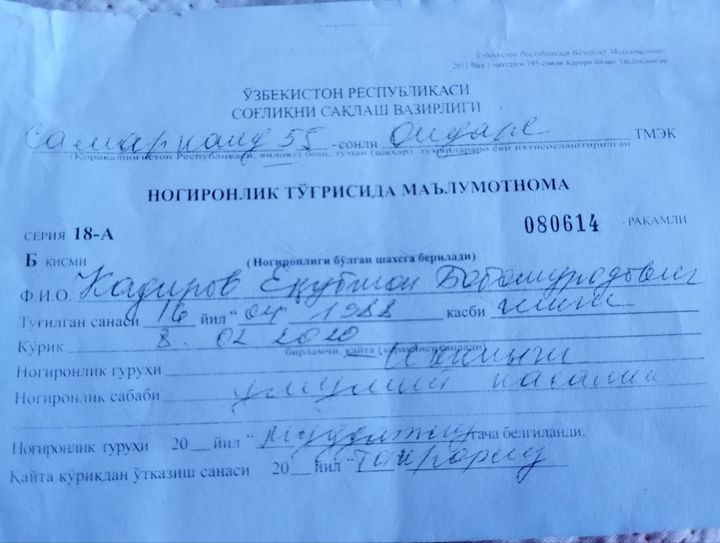 Ўзбекистон Республикаси Вазирлар Маҳкамасининг
2011 йил 1 июлдаги 195-сонли Қарори билан тасдиқланган
ЎЗБЕКИСТОН РЕСПУБЛИКАСИ
СОҒЛИҚНИ САҚЛАШ ВАЗИРЛИГИ
Самарқанд 55 -сонли ТМЭК
(Қорақалпоғистон Республикаси, вилоят) бош, туман (шаҳар), туманлараро ёки ихтисослаштирилган
НОГИРОНЛИК ТЎҒРИСИДА МАЪЛУМОТНОМА
СЕРИЯ 18-А 080614 - РАҚАМЛИ
Б ҚИСМИ (Ногиронлиги бўлган шахсга берилади)
Ф.И.О. Кадиров Ёқубжон Бобомуродович
Туғилган санаси 16 йил "04" 1988 касби
Кўрик 8. 02 2020
бирламчи, қайта
Ногиронлик гуруҳи иккинчи
Ногиронлик сабаби умумий касаллик
Ногиронлик гуруҳи 20__йил "муддатсиз гача белгиланди.
Қайта кўрикдан ўтказиш санаси 20__йил "